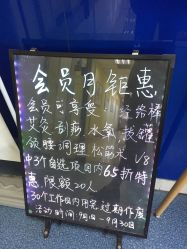 会员月钜惠
会员可享受 经络梳
艾灸 刮痧 水氧 拔罐
颈腰调理 松筋术 V8
中3个自选项目内65折特
惠,限额20人
30个工作日内用完过期作废
活动时间:9月 日-9月30日